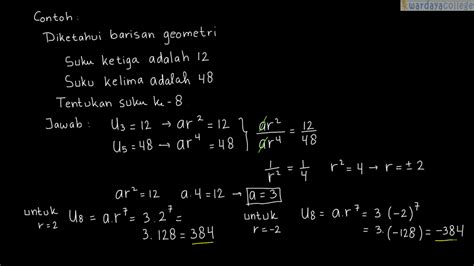 wardayacollege
Contoh :
Diketahui barisan geometri
Suku ketiga adalah 12
Suku kelima adalah 48
Tentukan suku ke-8
Jawab : U₃ = 12 → ar² = 12 } ar²/ar⁴ = 12/48
U₅ = 48 → ar⁴ = 48
1/r² = 1/4 r² = 4 → r = ± 2
ar² = 12 a.4 = 12 → a = 3
untuk r=2 U₈ = a.r⁷ = 3.2⁷ =
3.128 = 384
untuk r=-2 U₈ = a.r⁷ = 3(-2)⁷
= 3.(-128) = -384